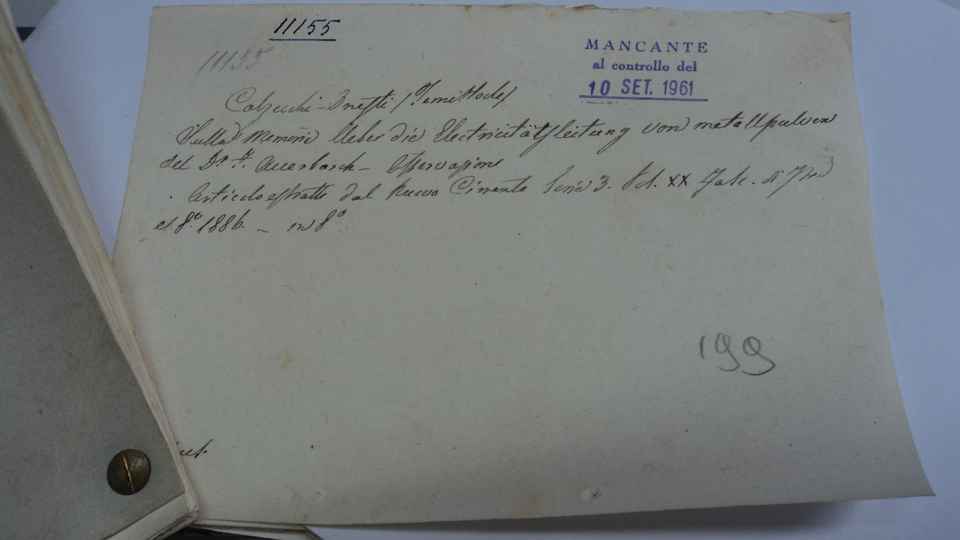 11155
11155
MANCANTE
al controllo del
10 SET. 1961
Calzecchi-Onesti (Temistocle)
Sulla Memoria Ueber die Electricitätsleitung von metallpulvern
del Dr. F. Auerbach - Osservazioni
Articolo estratto dal Nuovo Cimento Serie 3. Vol. XX Fasc. di
e 8º 1886. - in 8º
199